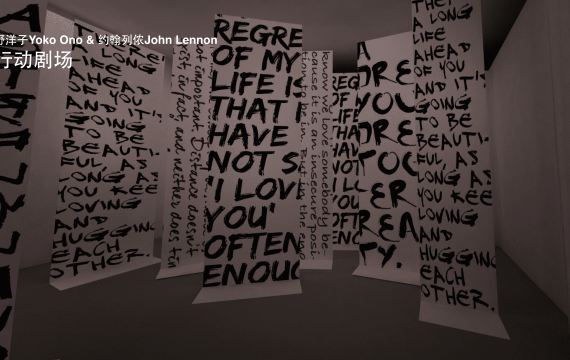 野洋子Yoko Ono & 约翰列侬John Lennon
行动剧场
A LONG
LIFE
AHEAD
OF
GOING
TO BE
BEAUTI-
FUL, AS
LONG AS
YOU KEE
LOVING
AND
HUGGING
EACH
OTHER.
not important. Distance doesn't
in fact, and neither does tim
REGRE
OF MY
LIFE IS
THAT I
HAVE
NOT S
'I LOV
YOU'
OFTEN
ENOUG
know we love somebody be
cause it is an insecure posi-
tion to be in. But in the end
REG
OF
LIFE
THA
HA
NOT
I L
YO
OFT
ENO
A
DRE
YOU
DRE
TOG
ER
REA
TY.
THEY
A LONG
LIFE
AHEAD
OF
GOING
TO BE
BEAUTI-
FUL, AS
LONG AS
YOU KEE
LOVING
AND
HUGGING
EACH
OTHER.